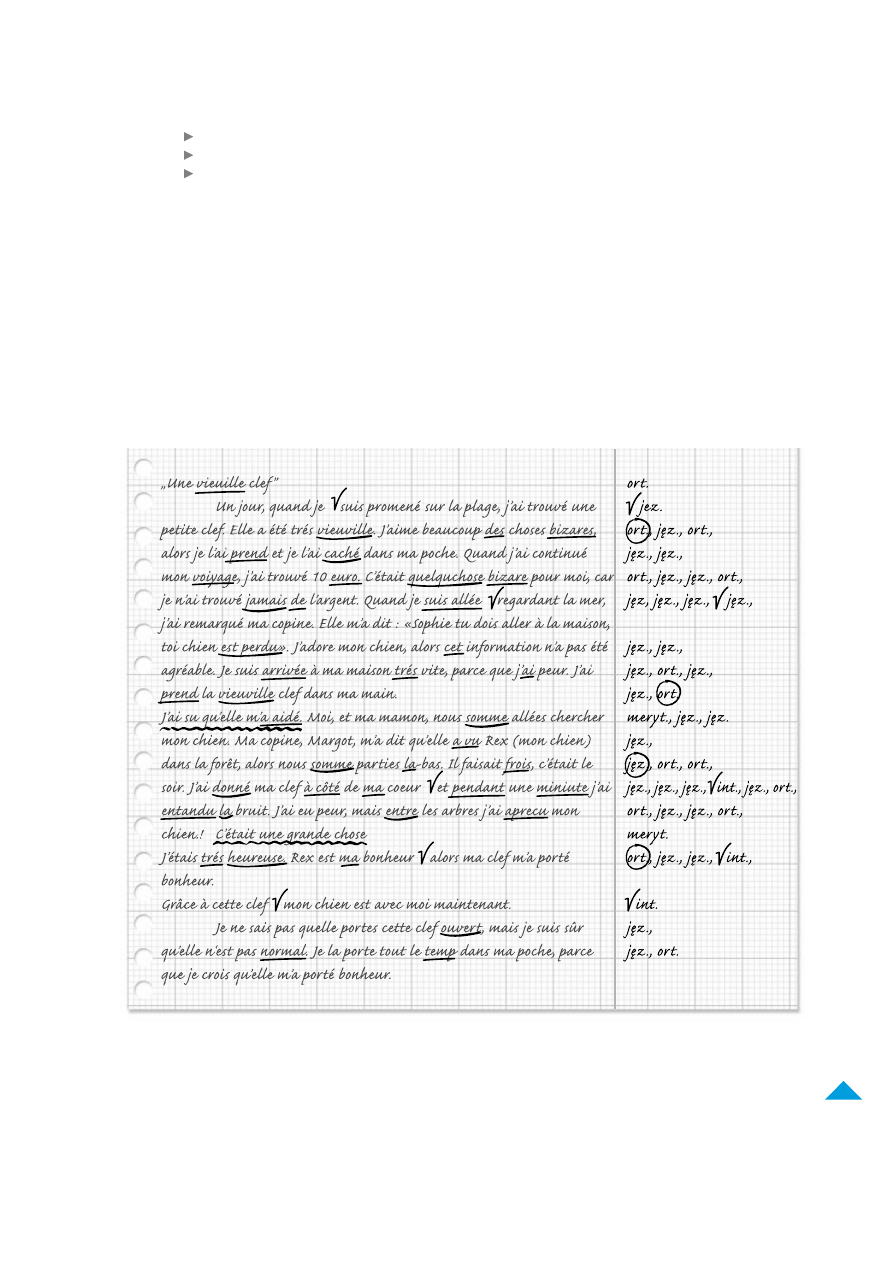 „Une vieuille clef” ort.
Un jour, quand je √suis promené sur la plage, j'ai trouvé une √jez.
petite clef. Elle a été trés vieuville. J'aime beaucoup des choses bizares, ort., jęz., ort.,
alors je l'ai prend et je l'ai caché dans ma poche. Quand j'ai continué jęz., jęz.,
mon voiyage, j'ai trouvé 10 euro. C'était quelguchose bizare pour moi, car ort., jęz., jęz., ort.,
je n'ai trouvé jamais de l'argent. Quand je suis allée √regardant la mer, jęz, jęz., jęz., √jęz.,
j'ai remarqué ma copine. Elle m'a dit : «Sophie tu dois aller à la maison,
toi chien est perdu». J'adore mon chien, alors cet information n'a pas été jęz., jęz.,
agréable. Je suis arrivée à ma maison trés vite, parce que j'ai peur. J'ai jęz., ort., jęz.,
prend la vieuville clef dans ma main. jęz., ort.
J'ai su qu'elle m'a aidé. Moi, et ma mamon, nous somme allées chercher meryt., jęz., jęz.
mon chien. Ma copine, Margot, m'a dit qu'elle a vu Rex (mon chien) jęz.,
dans la forêt, alors nous somme parties la-bas. Il faisait frois, c'était le jęz., ort., ort.,
soir. J'ai donné ma clef à côté de ma coeur √et pendant une miniute j'ai jęz., jęz., jęz., √int., jęz., ort.,
entandu la bruit. J'ai eu peur, mais entre les arbres j'ai aprecu mon ort., jęz., jęz., ort.,
chien.! C'était une grande chose meryt.
J'étais trés heureuse. Rex est ma bonheur √alors ma clef m'a porté ort., jęz., jęz., √int.,
bonheur.
Grâce à cette clef √mon chien est avec moi maintenant. √int.
Je ne sais pas quelle portes cette clef ouvert, mais je suis sûr jęz.,
qu'elle n'est pas normal. Je la porte tout le temp dans ma poche, parce jęz., ort.
que je crois qu'elle m'a porté bonheur.